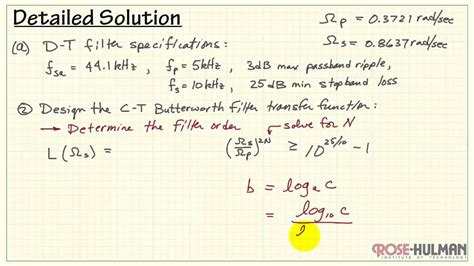 Detailed Solution
Ωp = 0.3721 rad/sec
Ωs = 0.8637 rad/sec
(a) D-T filter specifications:
fsa = 44.1 kHz , fp = 5 kHz , 3dB max passband ripple,
fs = 10 kHz , 25 dB min stopband loss
② Design the C-T Butterworth filter transfer function:
→ Determine the filter order
solve for N
L(Ωs) = (Ωs/Ωp)^2N ≥ 10^25/10 - 1
b = logₐ c
= log₁₀ c
l
ROSE-HULMAN
INSTITUTE OF TECHNOLOGY